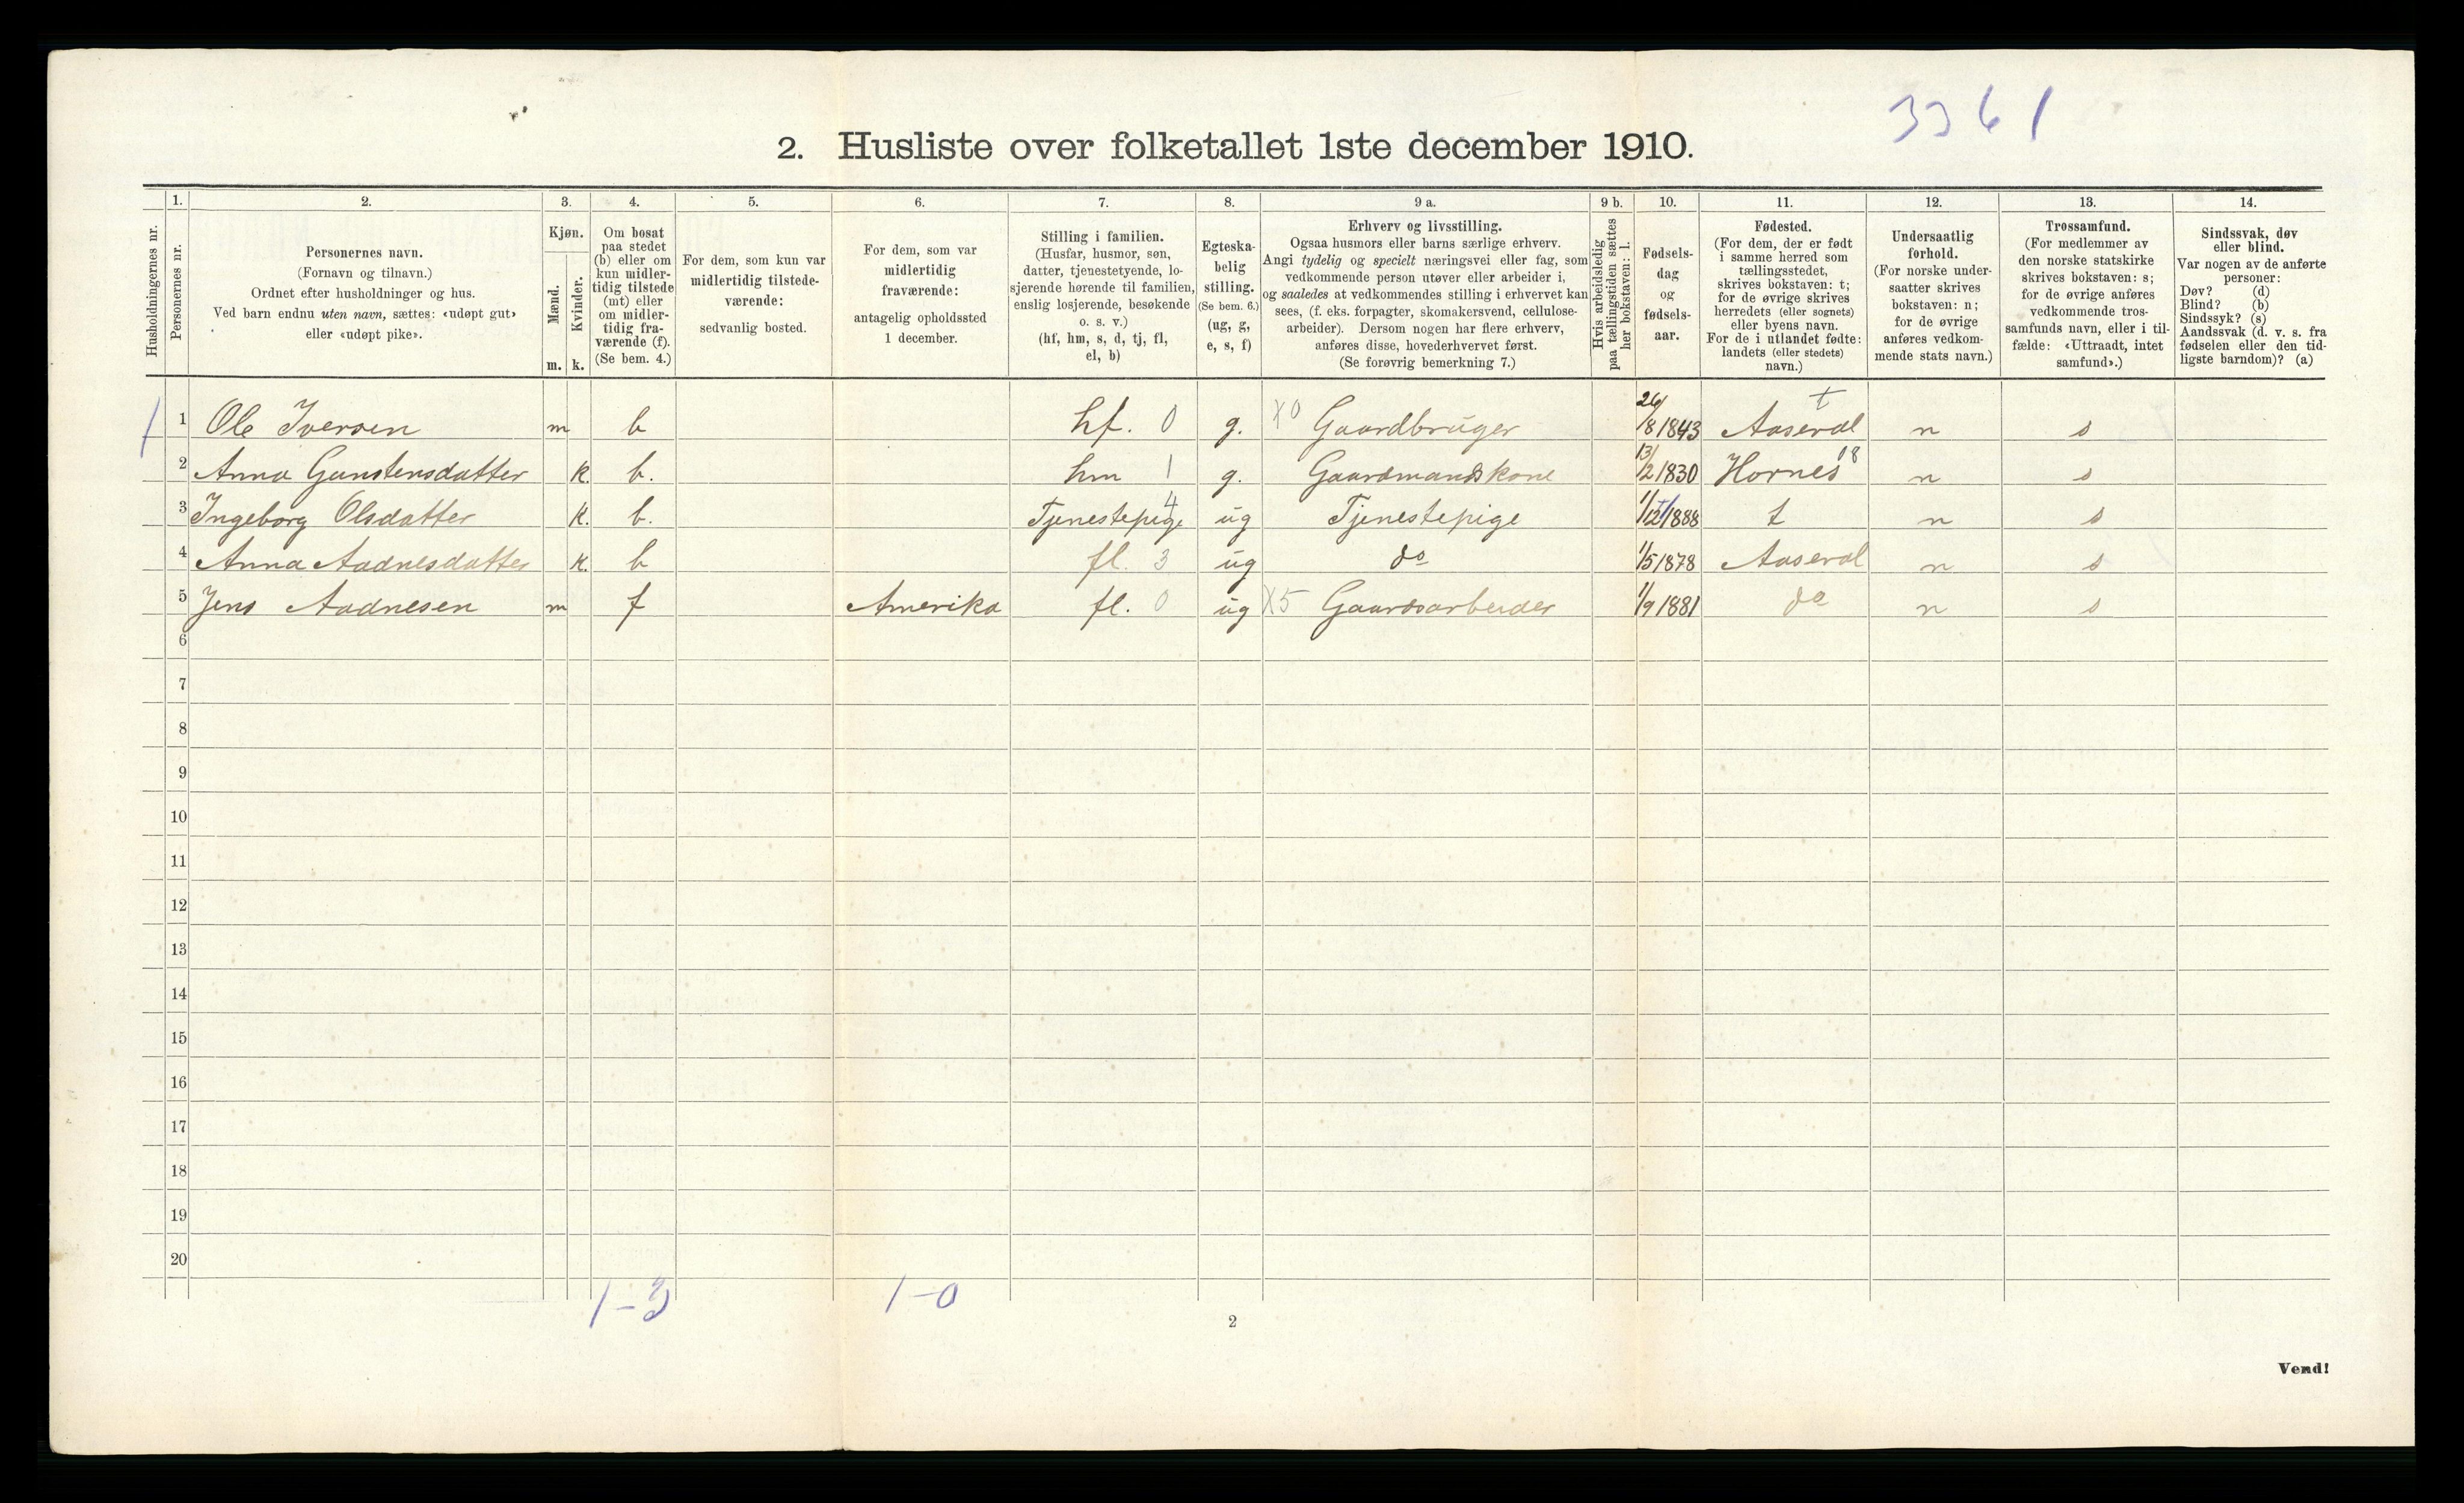 3361
2. Husliste over folketallet 1ste december 1910.
Husholdningernes nr.
1. Personernes nr.
2. Personernes navn.
(Fornavn og tilnavn.)
Ordnet efter husholdninger og hus.
Ved barn endnu uten navn, sættes: «udøpt gut»
eller «udøpt pike».
3. Kjøn.
Mænd. Kvinder.
m. k.
4. Om bosat
paa stedet
(b) eller om
kun midler-
tidig tilstede
(mt) eller
om midler-
tidig fra-
værende (f).
(Se bem. 4.)
5. For dem, som kun var
midlertidig tilstede-
værende:
sedvanlig bosted.
6. For dem, som var
midlertidig
fraværende:
antagelig opholdssted
1 december.
7. Stilling i familien.
(Husfar, husmor, søn,
datter, tjenestetyende, lo-
sjerende hørende til familien,
enslig losjerende, besøkende
o. s. v.)
(hf, hm, s, d, tj, fl,
el, b)
8. Egteska-
belig
stilling.
(Se bem. 6.)
(ug, g,
e, s, f)
9 a. Erhverv og livsstilling.
Ogsaa husmors eller barns særlige erhverv.
Angi tydelig og specielt næringsvei eller fag, som
vedkommende person utøver eller arbeider i,
og saaledes at vedkommendes stilling i erhvervet kan
sees, (f. eks. forpagter, skomakersvend, cellulose-
arbeider). Dersom nogen har flere erhverv,
anføres disse, hovederhvervet først.
(Se forøvrig bemerkning 7.)
9 b. Hvis arbeidsledig
paa tællingstiden sættes
her bokstaven: l.
10. Fødsels-
dag
og
fødsels-
aar.
11. Fødested.
(For dem, der er født
i samme herred som
tællingsstedet,
skrives bokstaven: t;
for de øvrige skrives
herredets (eller sognets)
eller byens navn.
For de i utlandet fødte:
landets (eller stedets)
navn.)
12. Undersaatlig
forhold.
(For norske under-
saatter skrives
bokstaven: n;
for de øvrige
anføres vedkom-
mende stats navn.)
13. Trossamfund.
(For medlemmer av
den norske statskirke
skrives bokstaven: s;
for de øvrige anføres
vedkommende tros-
samfunds navn, eller i til-
fælde: «Uttraadt, intet
samfund».)
14. Sindssvak, døv
eller blind.
Var nogen av de anførte
personer:
Døv? (d)
Blind? (b)
Sindssyk? (s)
Aandssvak (d. v. s. fra
fødselen eller den tid-
ligste barndom)? (a)
1 1 Ole Iversen m b hf. 0 g. X0 Gaardbruger 26/8 1843 Aaseral t n s
2 Anna Gunstensdatter k. b. hm 1 g. Gaardmandskone 13/2 1830 Hornes 18 n s
3 Ingeborg Olsdatter k. b. Tjenestepige 4 ug Tjenestepige 1/12 1888 t n s
4 Anna Aadnesdatter k. b fl. 3 ug do 1/5 1878 Aaseral n s
5 Jens Aadnesen m f Amerika fl. 0 ug X5 Gaardsarbeider 1/9 1881 do n s
6
7
8
9
10
11
12
13
14
15
16
17
18
19
20
1-3 1-0
2
Vend!